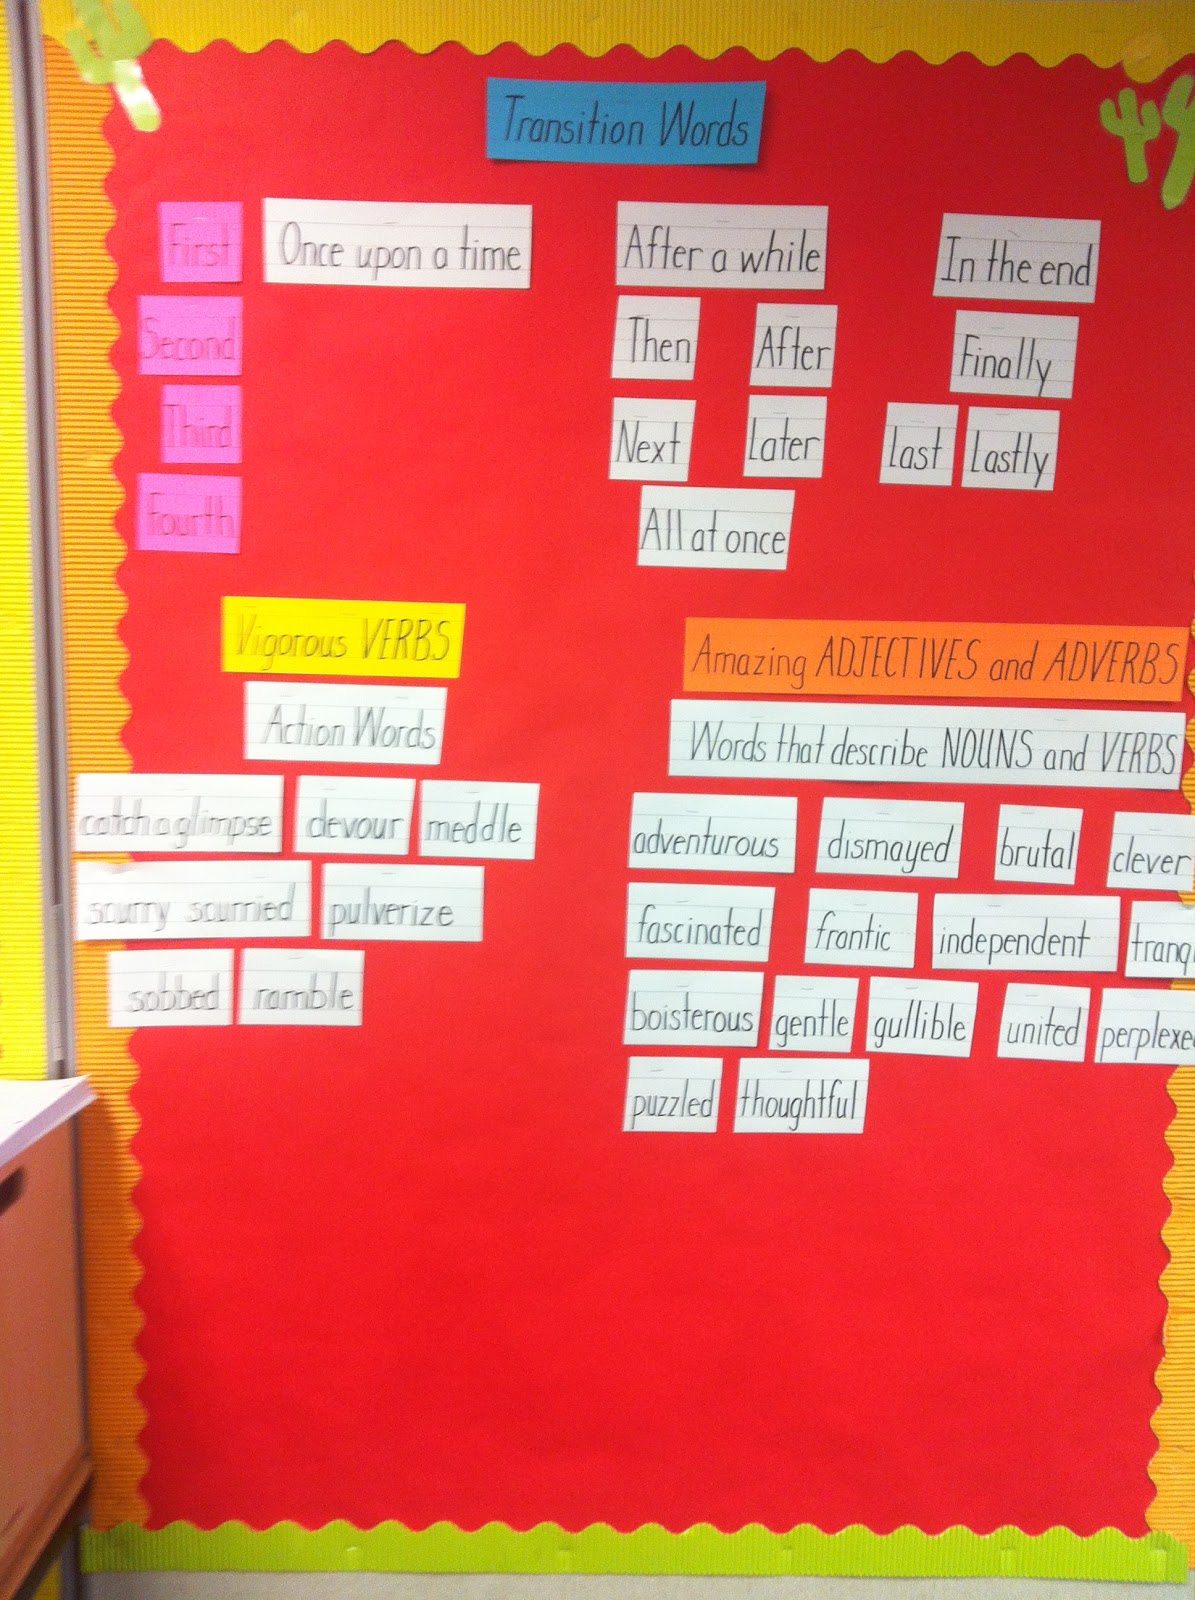 Transition Words
First Once upon a time After a while In the end
Second Then After Finally
Third Next Later Last Lastly
Fourth All at once
Vigorous VERBS
Action Words
catch a glimpse devour meddle
scurry scurried pulverize
sobbed ramble
Amazing ADJECTIVES and ADVERBS
Words that describe NOUNS and VERBS
adventurous dismayed brutal clever
fascinated frantic independent tranq
boisterous gentle gullible united perplexe
puzzled thoughtful